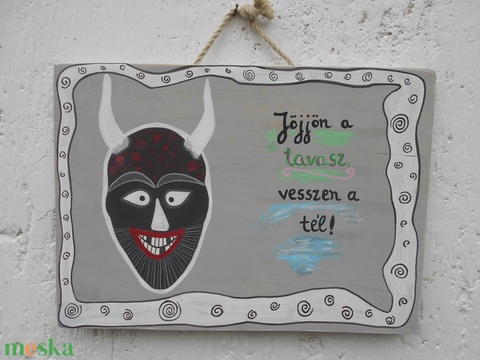 Jöjjön a
tavasz,
vesszen a
tél!
meska